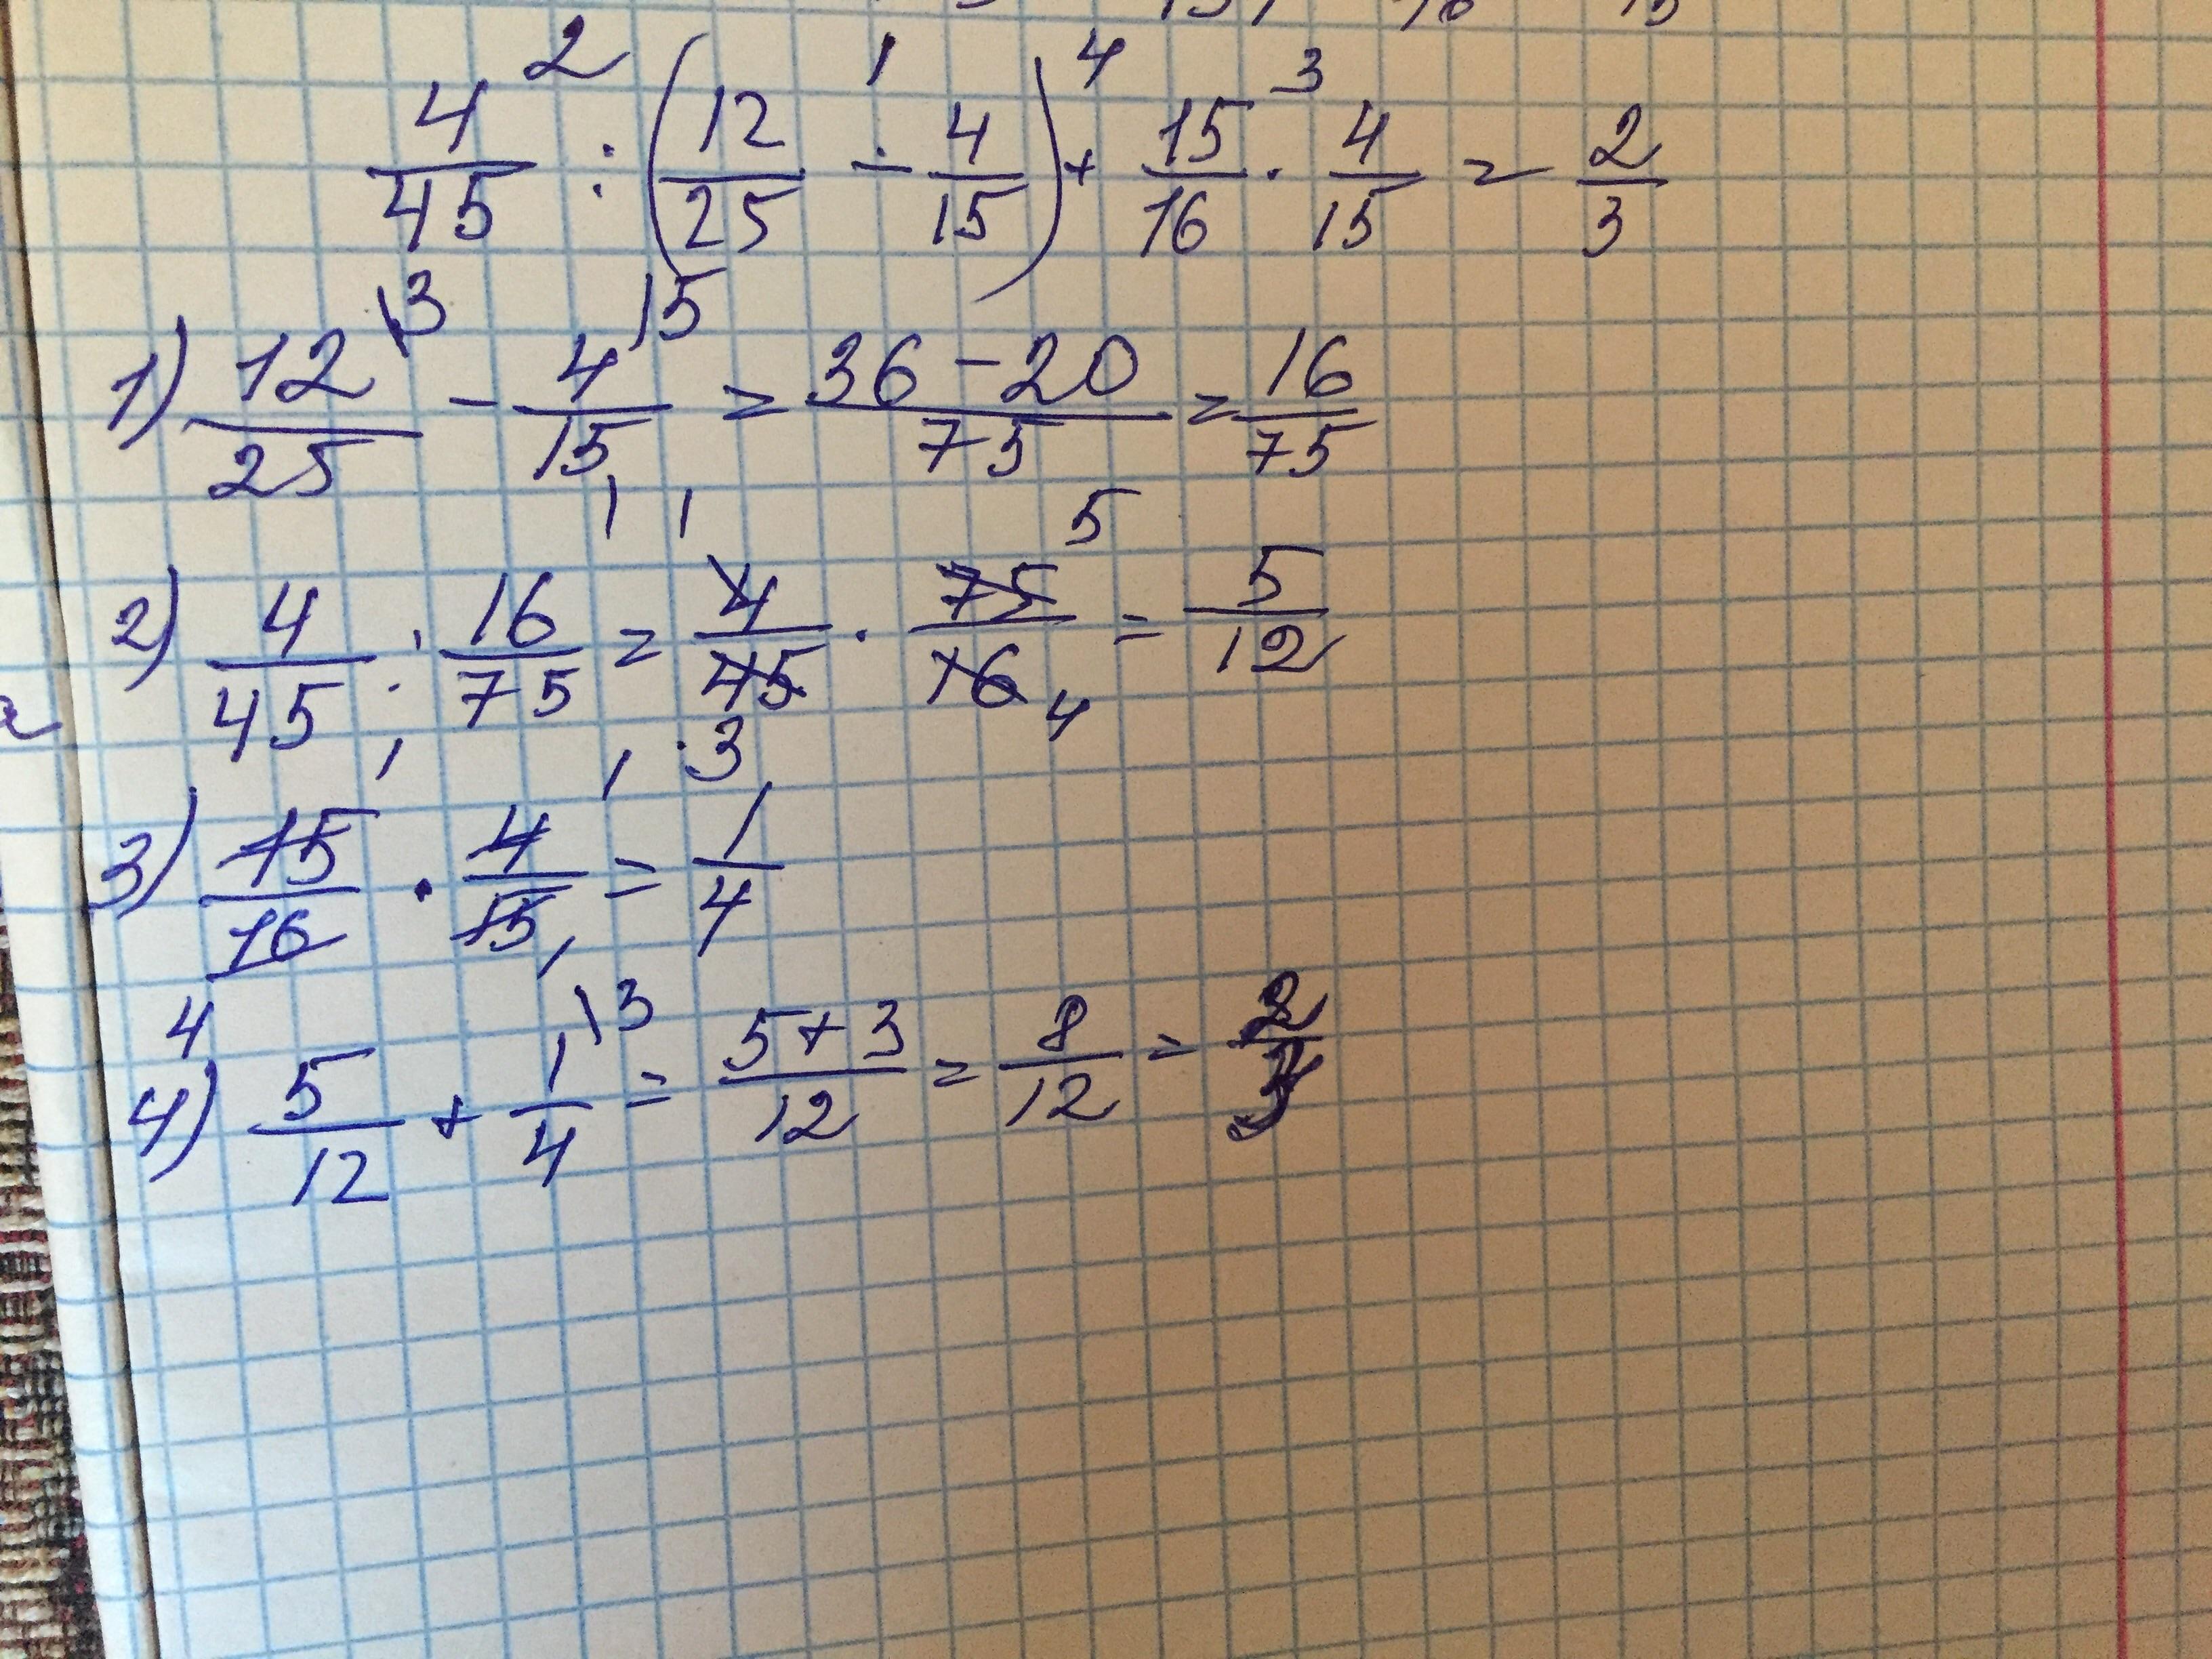 4/45 : (12/25 - 4/15) + 15/16 · 4/15 = 2/3
1) 12/25 - 4/15 = 36-20/75 = 16/75
2) 4/45 : 16/75 = 4/45 · 75/16 = 5/12
3) 15/16 · 4/15 = 1/4
4) 5/12 + 1/4 = 5+3/12 = 8/12 = 2/3